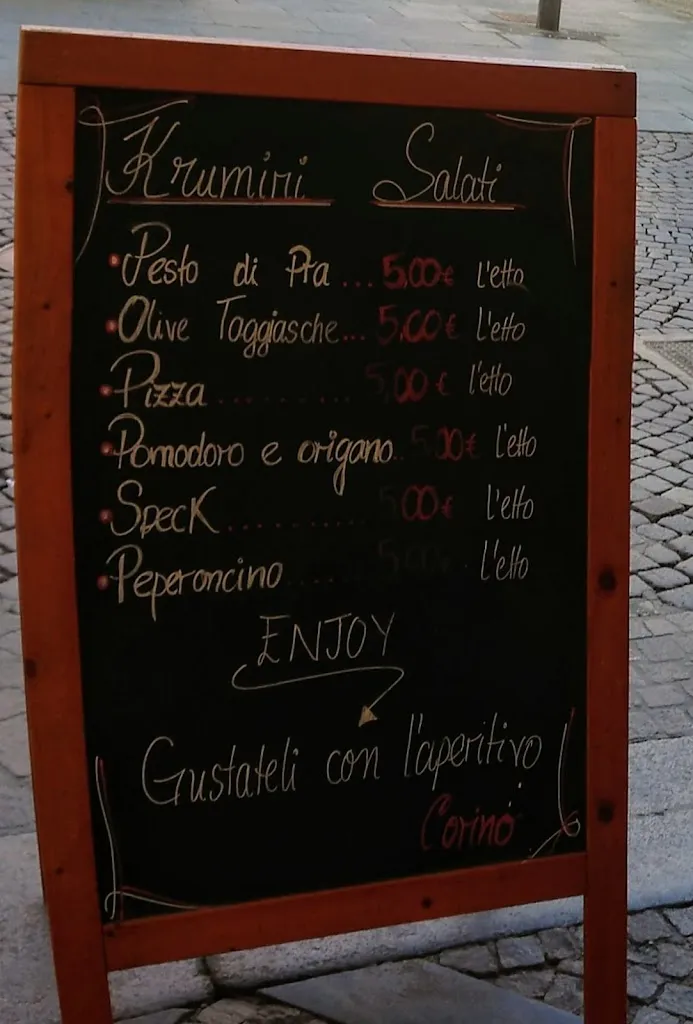 Krumiri Salati
• Pesto di Pra ... 5,00€ l'etto
• Olive Taggiasche... 5,00€ l'etto
• Pizza .......... 5,00€ l'etto
• Pomodoro e origano.. 5,00€ l'etto
• Speck .......... 5,00€ l'etto
• Peperoncino .... 5,00€ l'etto
ENJOY
Gustateli con l'aperitivo
Corino